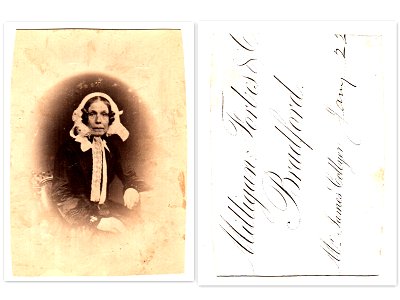 Milligan, Forbes & Co
Bradford.
Mr James Collyer Jany 22